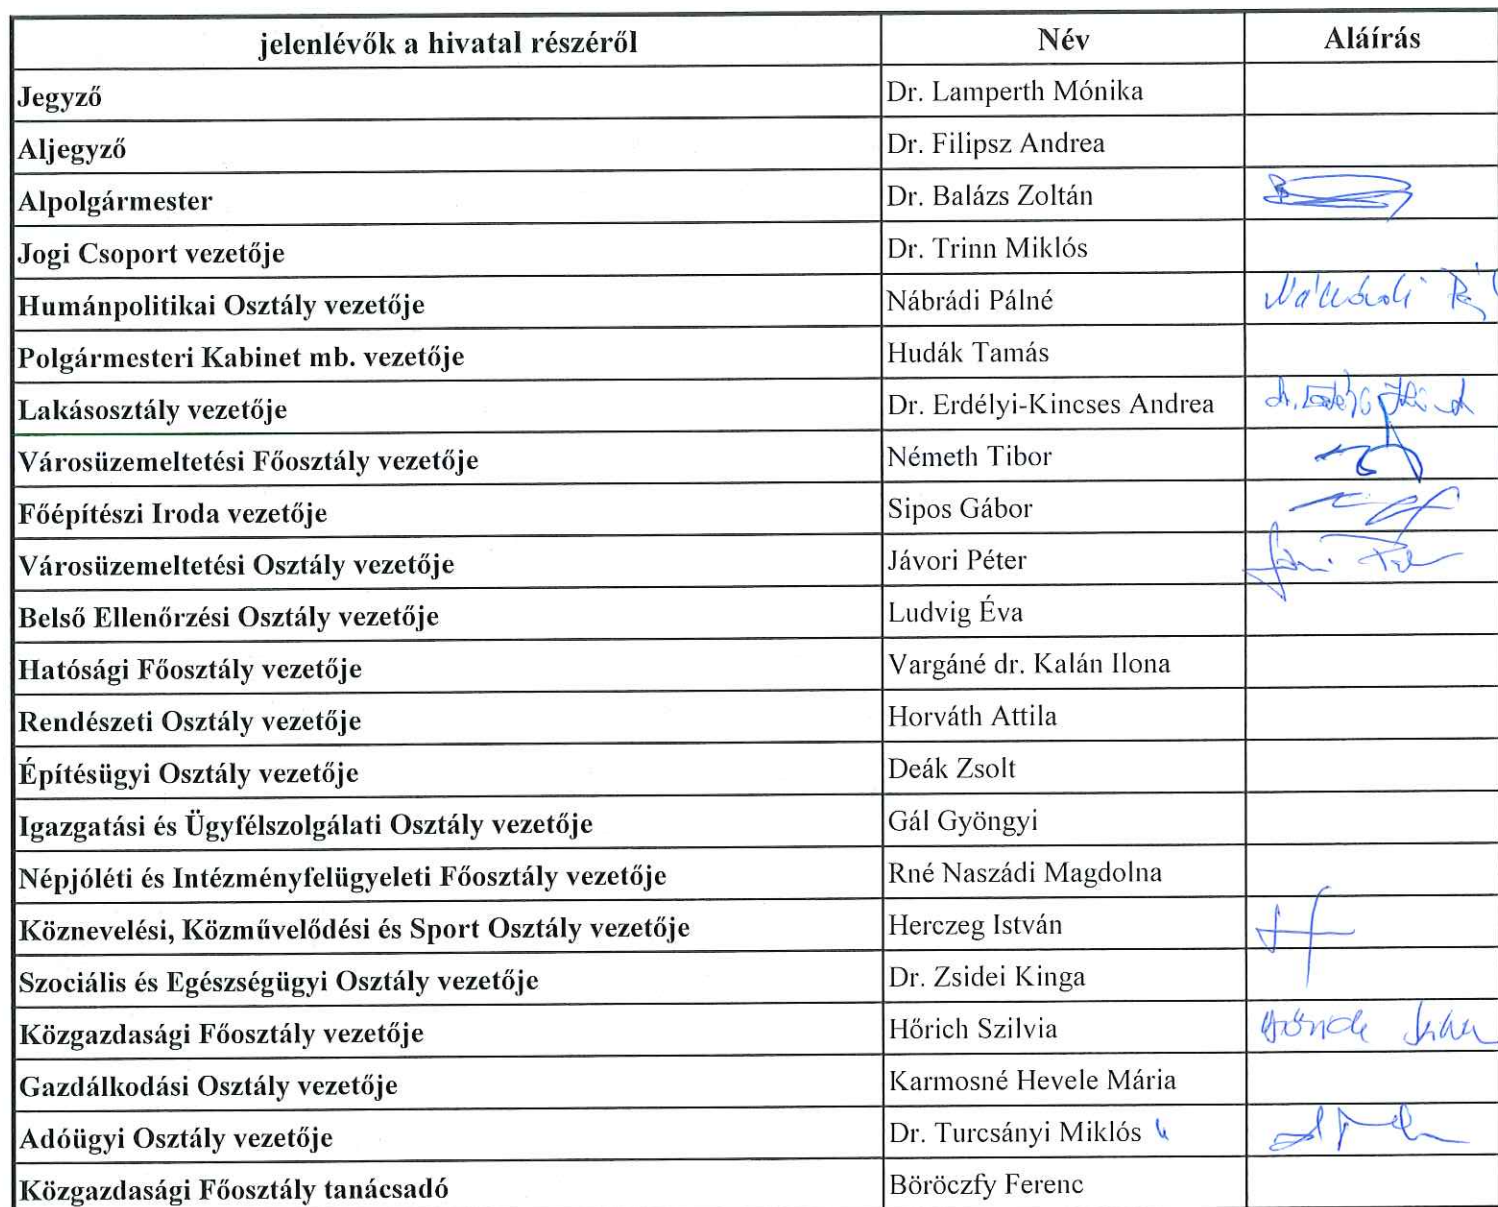 jelenlévők a hivatal részéről Név Aláírás
Jegyző Dr. Lamperth Mónika
Aljegyző Dr. Filipsz Andrea
Alpolgármester Dr. Balázs Zoltán
Jogi Csoport vezetője Dr. Trinn Miklós
Humánpolitikai Osztály vezetője Nábrádi Pálné
Polgármesteri Kabinet mb. vezetője Hudák Tamás
Lakásosztály vezetője Dr. Erdélyi-Kincses Andrea
Városüzemeltetési Főosztály vezetője Németh Tibor
Főépítészi Iroda vezetője Sipos Gábor
Városüzemeltetési Osztály vezetője Jávori Péter
Belső Ellenőrzési Osztály vezetője Ludvig Éva
Hatósági Főosztály vezetője Vargáné dr. Kalán Ilona
Rendészeti Osztály vezetője Horváth Attila
Építésügyi Osztály vezetője Deák Zsolt
Igazgatási és Ügyfélszolgálati Osztály vezetője Gál Gyöngyi
Népjóléti és Intézményfelügyeleti Főosztály vezetője Rné Naszádi Magdolna
Köznevelési, Közművelődési és Sport Osztály vezetője Herczeg István
Szociális és Egészségügyi Osztály vezetője Dr. Zsidei Kinga
Közgazdasági Főosztály vezetője Hőrich Szilvia
Gazdálkodási Osztály vezetője Karmosné Hevele Mária
Adóügyi Osztály vezetője Dr. Turcsányi Miklós
Közgazdasági Főosztály tanácsadó Böröczfy Ferenc